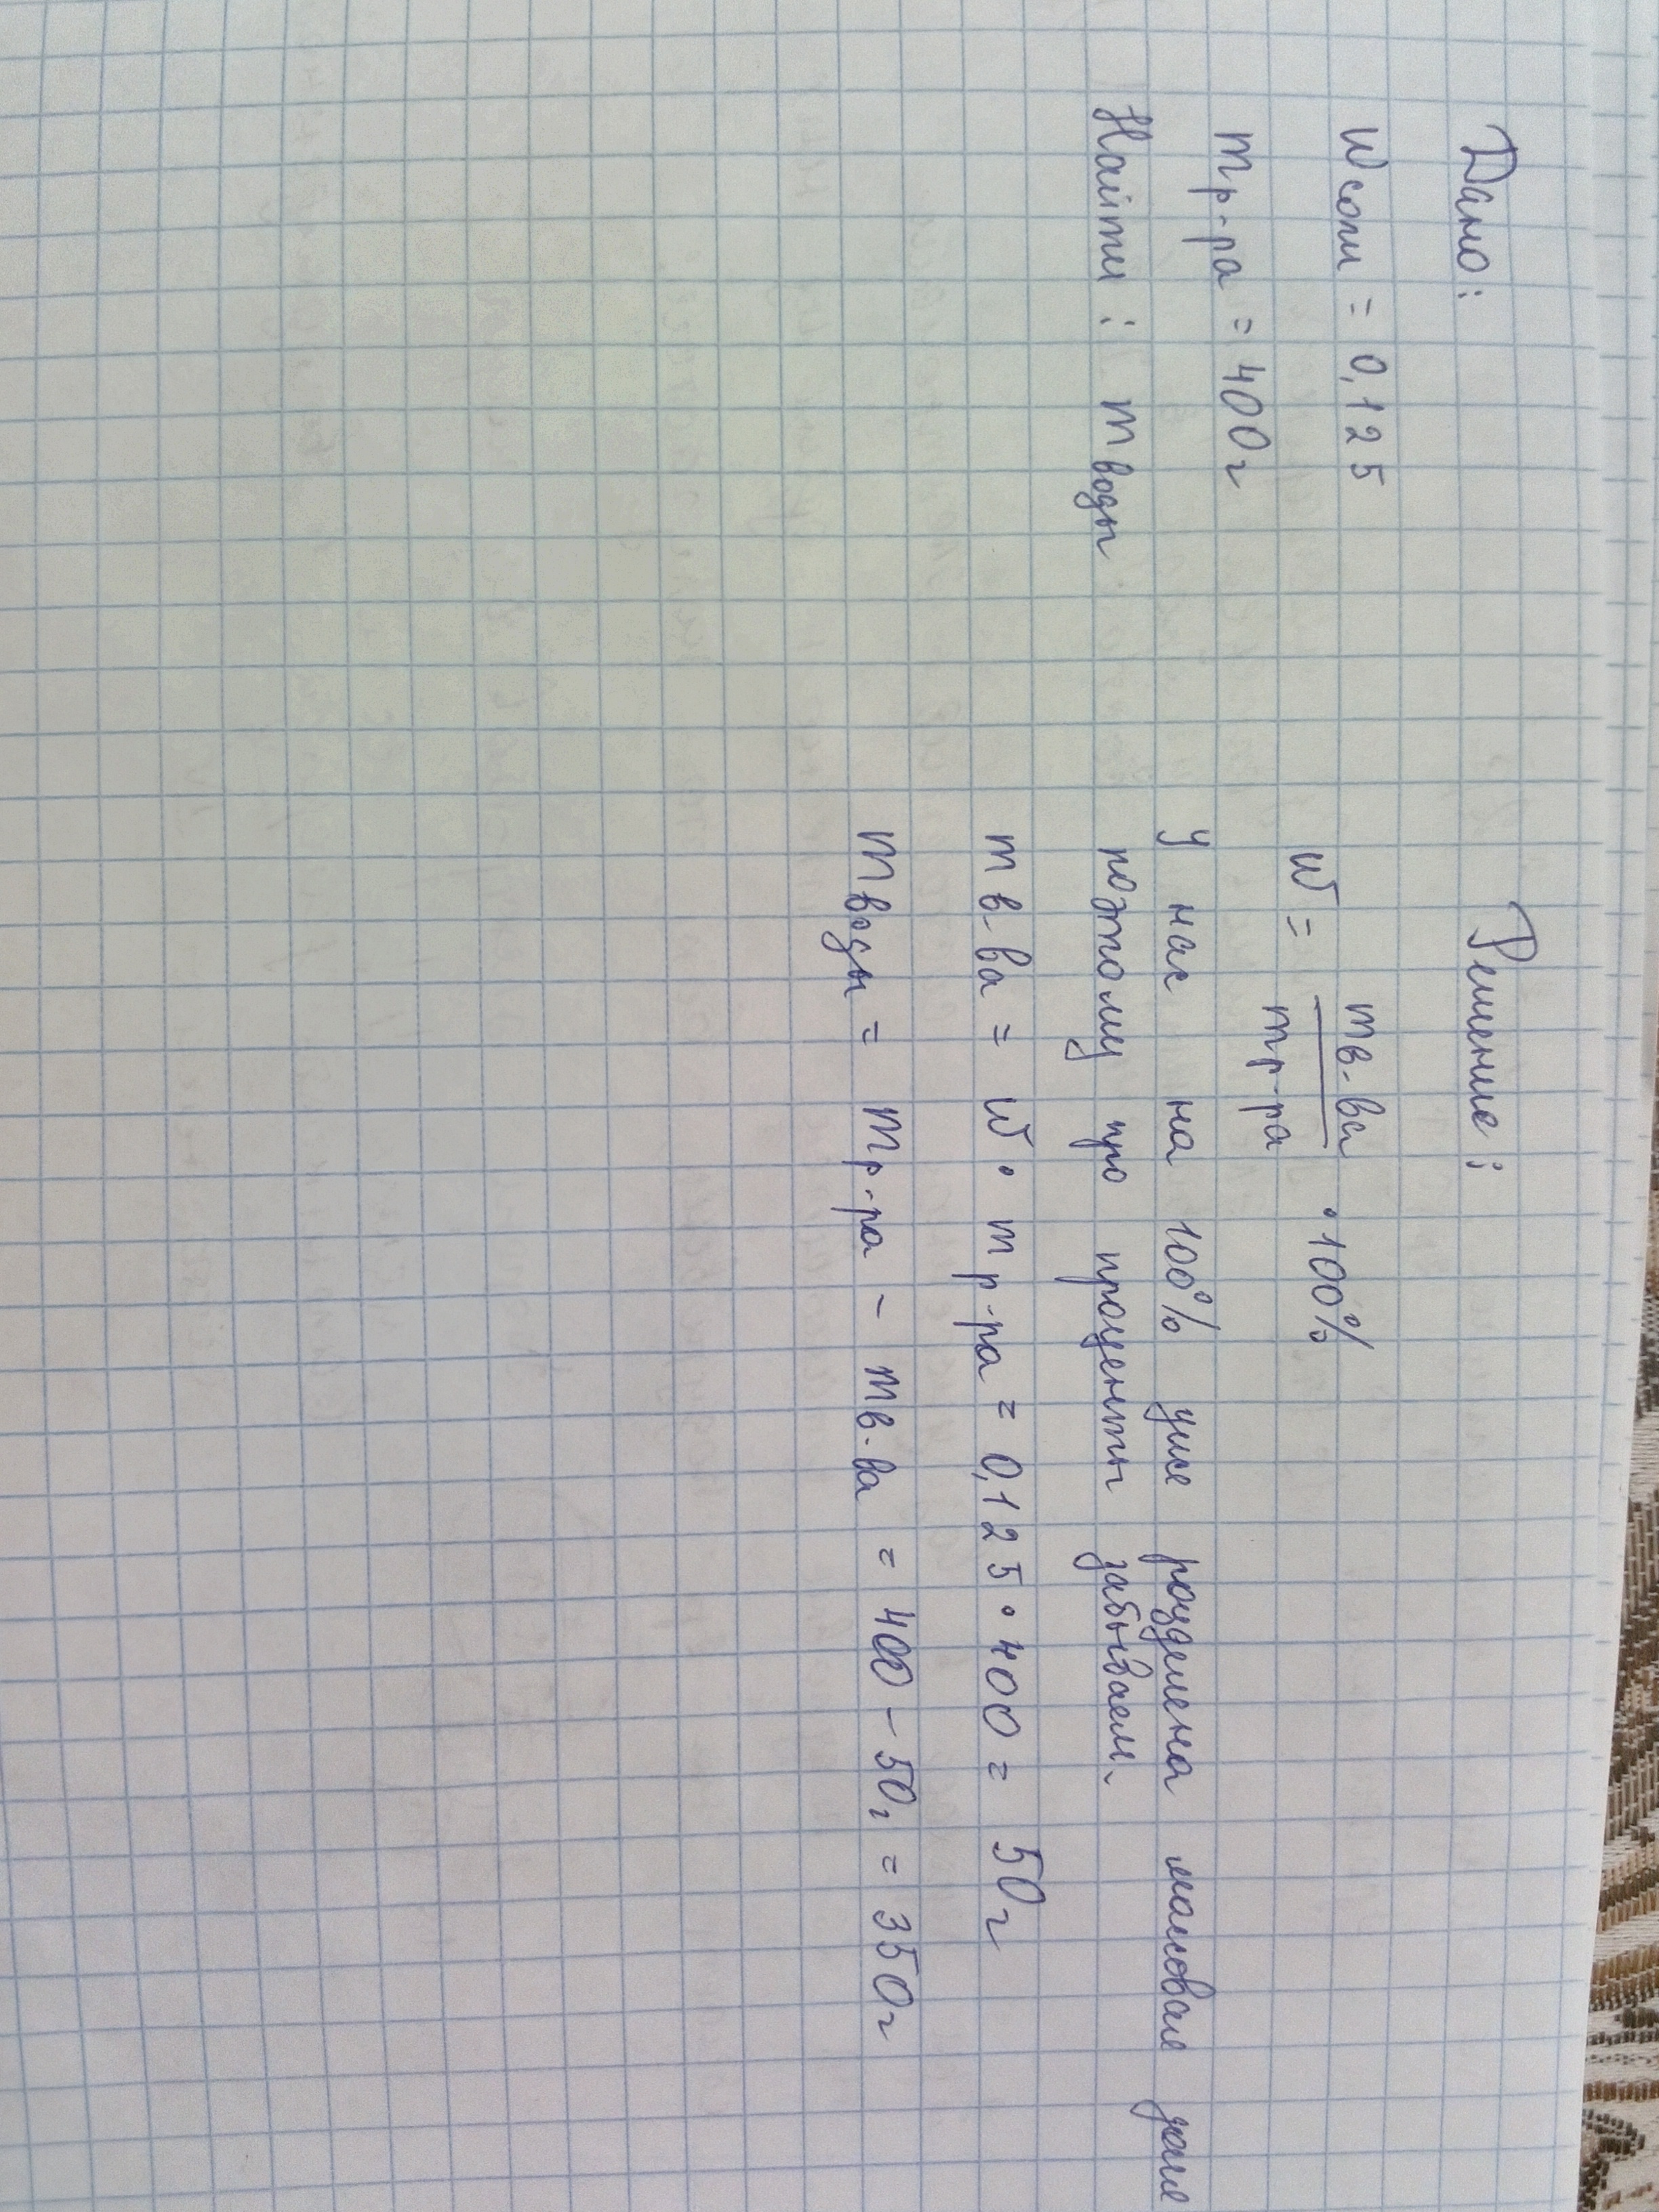 Дано:
Wсоли = 0,125
mр-ра = 400г
Найти: mводы
Решение:
W = mв-ва / mр-ра • 100%
У нас на 100% уже разделена массовая доля
поэтому про проценты забываем.
mв-ва = W • mр-ра = 0,125 • 400 = 50г
mводы = mр-ра - mв-ва = 400 - 50г = 350г